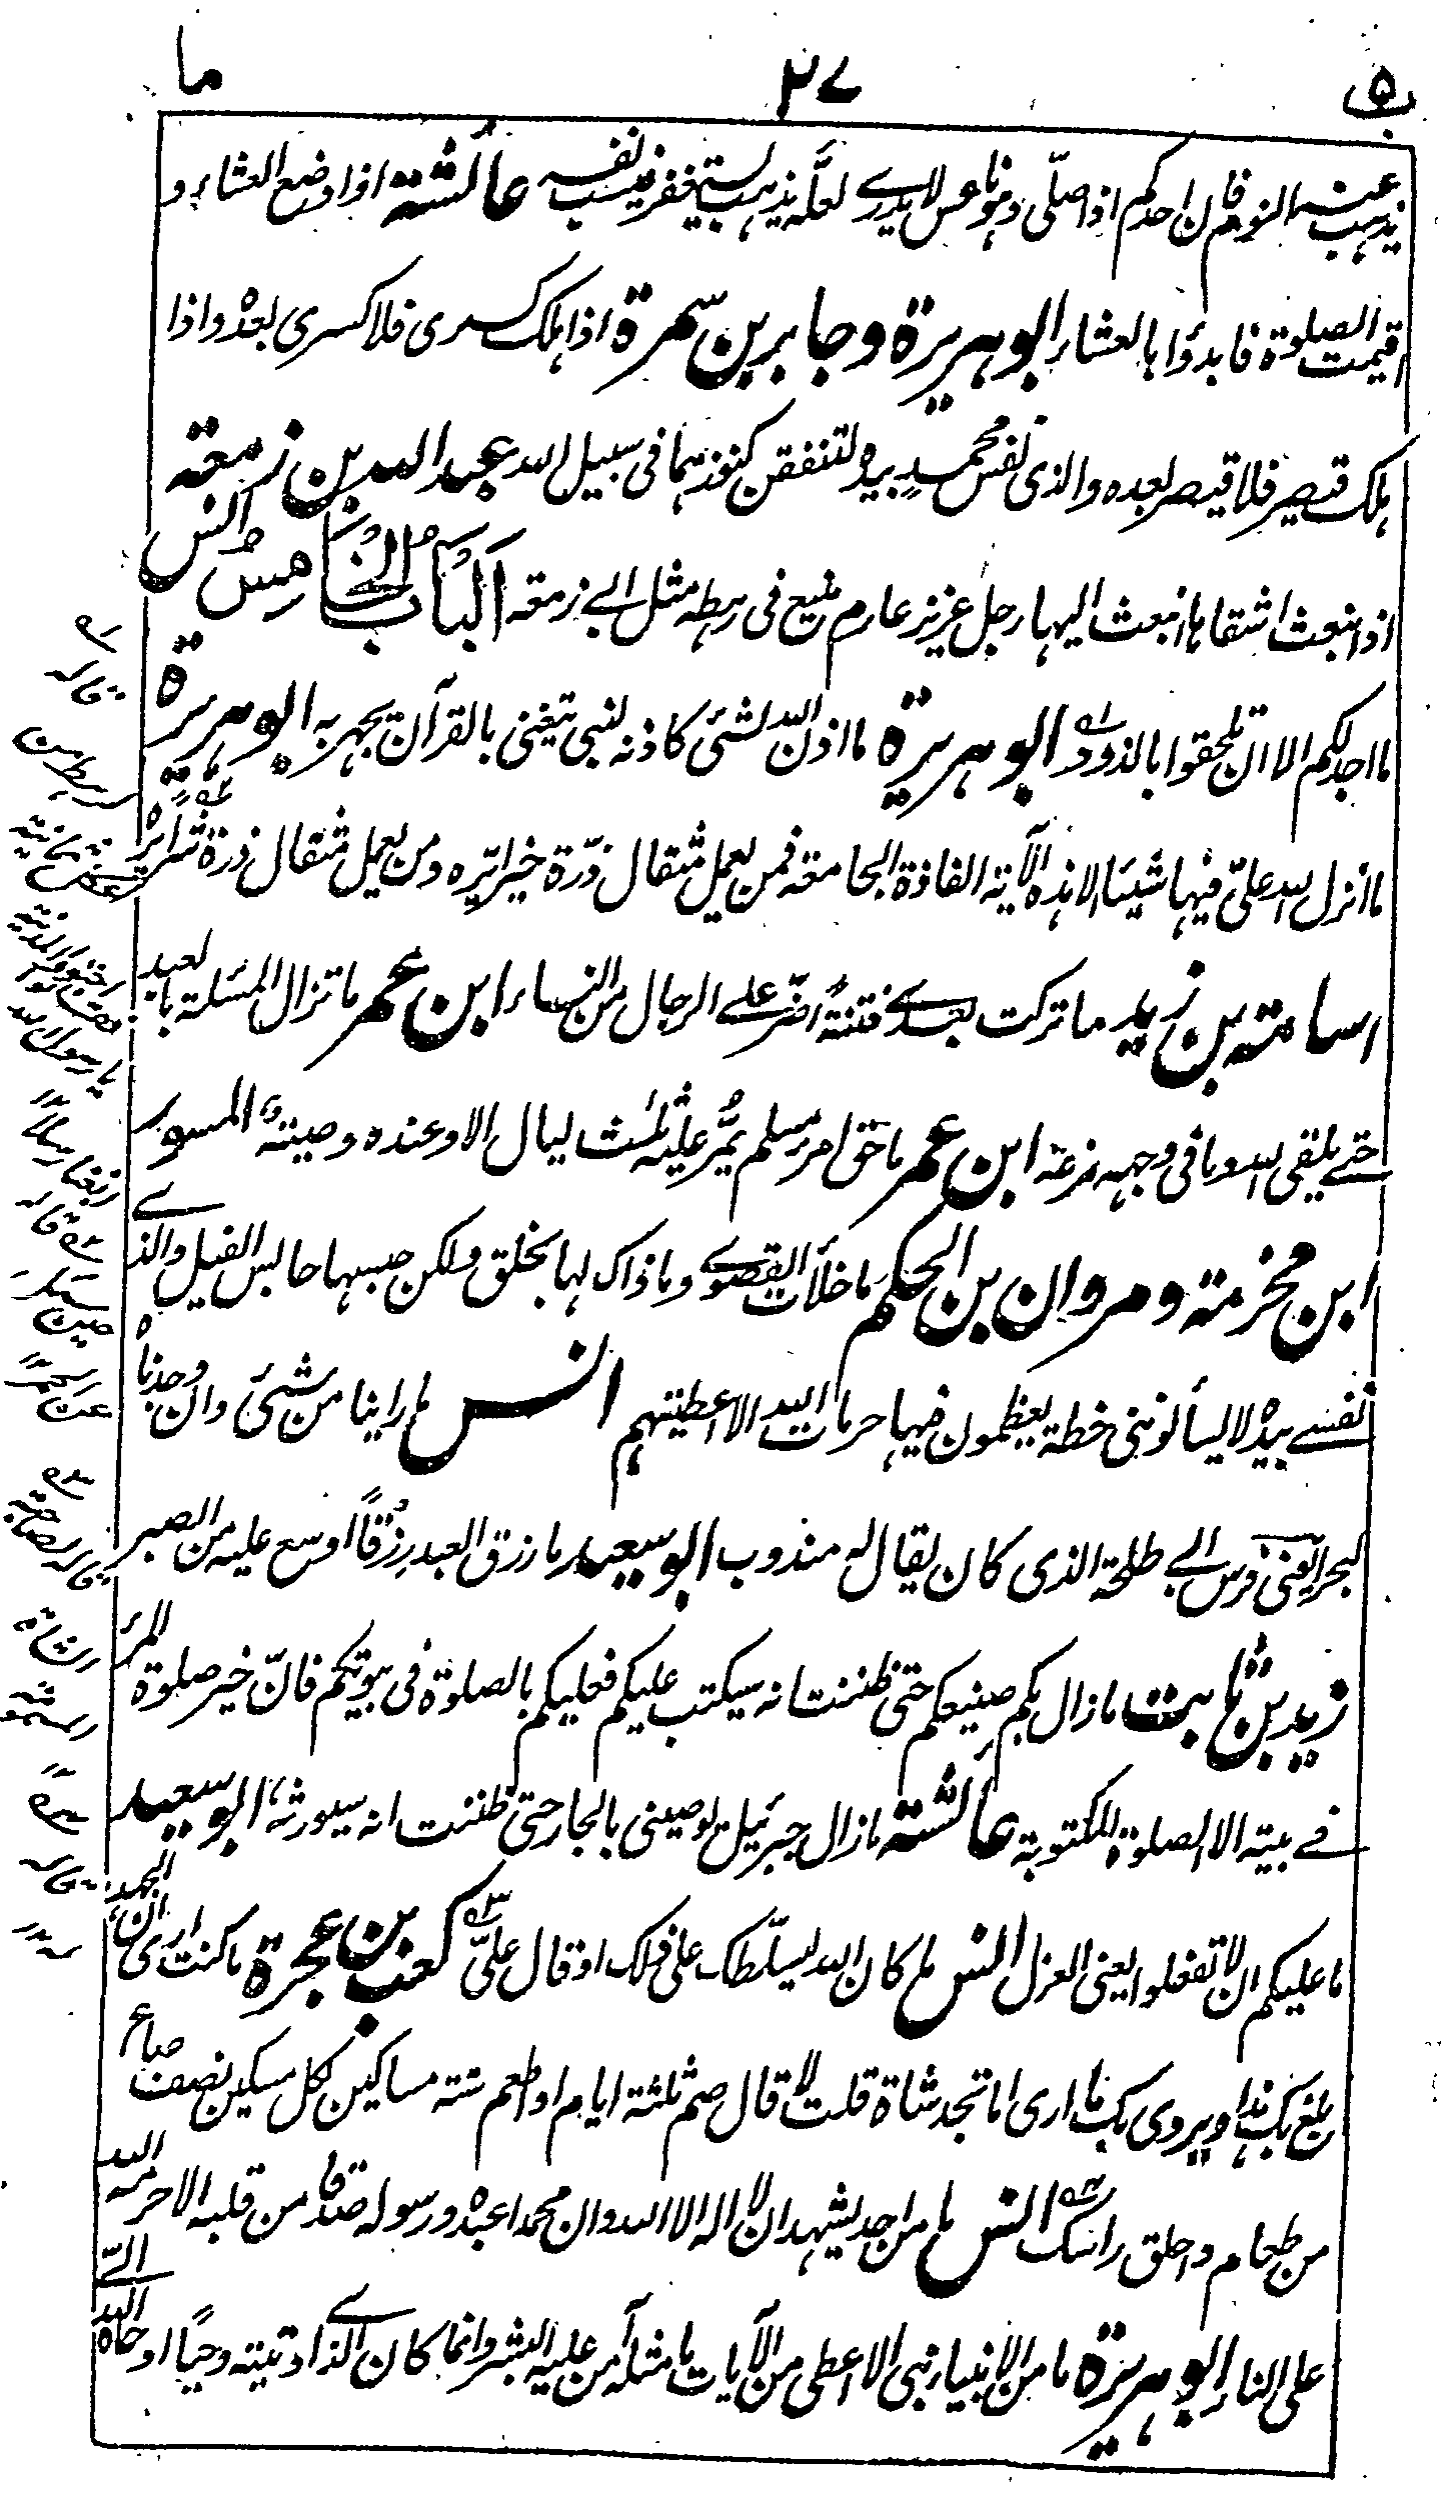 ب ۵
۳۷
ما
يذهب عنه النوم فان احدكم اذا صلّى وهو ناعس لا يدرے لعلّه يذهب يستغفر فيسب نفسه عائشة اذا وضع العشاء و
اقيمت الصلوة فابدؤا بالعشاء ابو هريرة وجابر بن سمرة اذا هلك كسرى فلا كسرى بعده واذا
هلك قيصر فلا قيصر بعده والذى نفس محمدٍ بيده لتنفقن كنوزهما فى سبيل الله عبد الله بن زمعة
اذ انبعث اشقاها انبعث اليها رجل عزيز عارم منيع فى رهطه مثل ابے زمعة اَلبَابُ الخَامِسُ انس
ما اجد لكم الا ان تلحقوا بالذود ابو هريرة ما اذن الله لشئ كاذنه لنبى يتغنى بالقرآن يجهر به ابو هريرة
ما انزل الله علىّ فيها شيئا الا هذه الآية الفاذة الجامعة فمن يعمل مثقال ذرّة خيرا يره ومن يعمل مثقال ذرة شرا يره
اسامة بن زيد ما تركت بعدے فتنةً اضر علے الرجال من النساء ابن عمر ما تزال المسئلة بالعبد
حتے يلقى الله وما فى وجهه مزعة ابن عمر ما حق امرء مسلم يمُرّ عليه ثلث ليال الا وعنده وصيته المسور
ابن مخرمة ومروان بن الحكم ما خلأت القصوے وما ذاك لها بخلق ولكن حبسها حابس الفيل والذے
نفسے بيده لا يسألوننى خطة يعظمون فيها حرمات الله الا اعطيتهم انس ما راينا من شئ وان وجدناه
لبحرا يعنى فرس ابے طلحة الذى كان يقال له مندوب ابو سعيد ما رزق العبد رزقًا اوسع عليه من الصبر
زيد بن ثابت ما زال بكم صنيعكم حتى ظننت انه سيكتب عليكم فعليكم بالصلوة فى بيوتكم فانّ خير صلوة المرء
فے بيته الا الصلوة المكتوبة عائشة ما زال جبرئيل يوصينى بالجار حتى ظننت انه سيورثه ابو سعيد
ما عليكم ان لا تفعلوا يعنى العزل انس ما كان الله ليسلّطك على ذلك او قال علىّ كعب بن عجرة ما كنت ارى ان الجهد
بلغ بك هذا ويروى بك ما ارى اما تجد شاة قلت لا قال صم ثلثة ايام او اطعم ستة مساكين لكل مسكين نصف صاع
من طعام واحلق راسك انس ما من احد يشهد ان لا اله الا الله وان محمدا عبده ورسوله صدقا من قلبه الا حرمه الله
على النار ابو هريرة ما من الانبياء نبى الا اعطى من الآيات ما مثله آمن عليه البشر وانما كان الذے اوتيته وحيًا اوحاه الله الےّ
قاله
لرهط من
يا رسول الله
قاله
حين
قاله
قاله